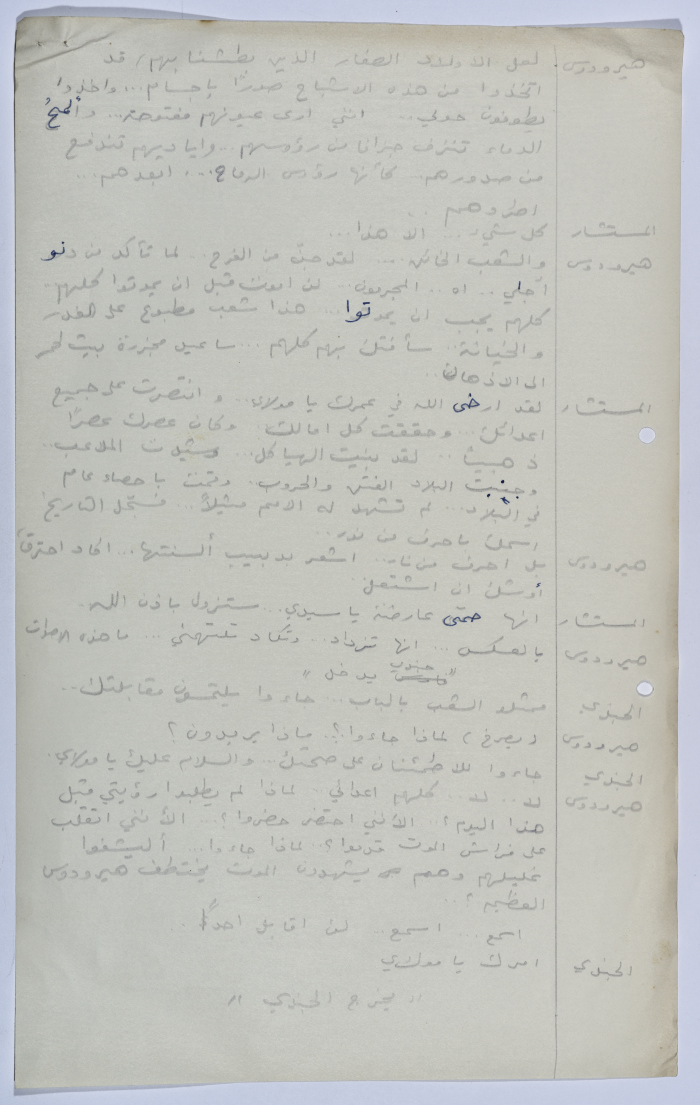 هيرودوس لعل الاولاد الصغار الذين بطشنا بهم، قد
اتخذوا من هذه الاشباح صدرًا باجسام... واخذوا
يطوفون حولي... انني ارى عيونهم مفتوحة... وألمحُ
الدماء تنزف من رؤوسهم... واياديهم تندفع
من صدورهم.. كأنها رؤوس الرماح... ابعدهم...
اطردوهم..
المستشار كل شيء... الا هذا...
هيرودوس والشعب الخائن... لقد جنّ من الفرح... لما تأكد من دنو
أجلي.. اه... المجرمون.. لن اموت قبل ان يموتوا كلهم..
كلهم يجب ان يموتوا... هذا شعب مطبوع على الغدر
والخيانة.. سأفتك بهم كلهم... ساعيد مجزرة بيت لحم
الى الاذهان..
المستشار لقد ارضى الله في عمرك يا مولاي.. و انتصرت على جميع
اعدائك.. وحققت كل امالك.. وكان عصرك عصرًا
ذهبيًا.. لقد بنيت الهياكل... وشيدت الملاعب..
وجنبت البلاد الفتن والحروب.. وقمت باحصاء عام
في البلاد... لم تشهد له الامم مثيلاً... فسجل التاريخ
اسمك باحرف من نور..
هيرودوس بل احرف من نار.. اشعر بدبيب ألسنتها... اكاد احترق
أوشك ان اشتعل.
المستشار انها حمى عارضة يا سيدي.. ستزول باذن الله.
هيرودوس بالعكس... انها تزداد.. وتكاد تلتهمني... ما هذه الاصوات
" جندي يدخل "
الجندي ممثلو الشعب بالباب... جاءوا يلتمسون مقابلتك..
هيرودوس (يصرخ) لماذا جاءوا؟.. ماذا يريدون؟
الجندي جاءوا للاطمئنان على صحتك.. والسلام عليك يا مولاي.
هيرودوس لا.. لا... كلهم اعدائي.. لماذا لم يطلبوا رؤيتي قبل
هذا اليوم؟.. الأنني احتضر حضروا؟... الأنني اتقلب
على فراش الموت قدموا؟.. لماذا جاءوا... أليشفوا
غليلهم وهم يشهدون الموت يختطف هيرودوس
العظيم؟..
اسمع... اسمع.. لن اقابل احدًا..
الجندي امرك يا مولاي
" يخرج الجندي "